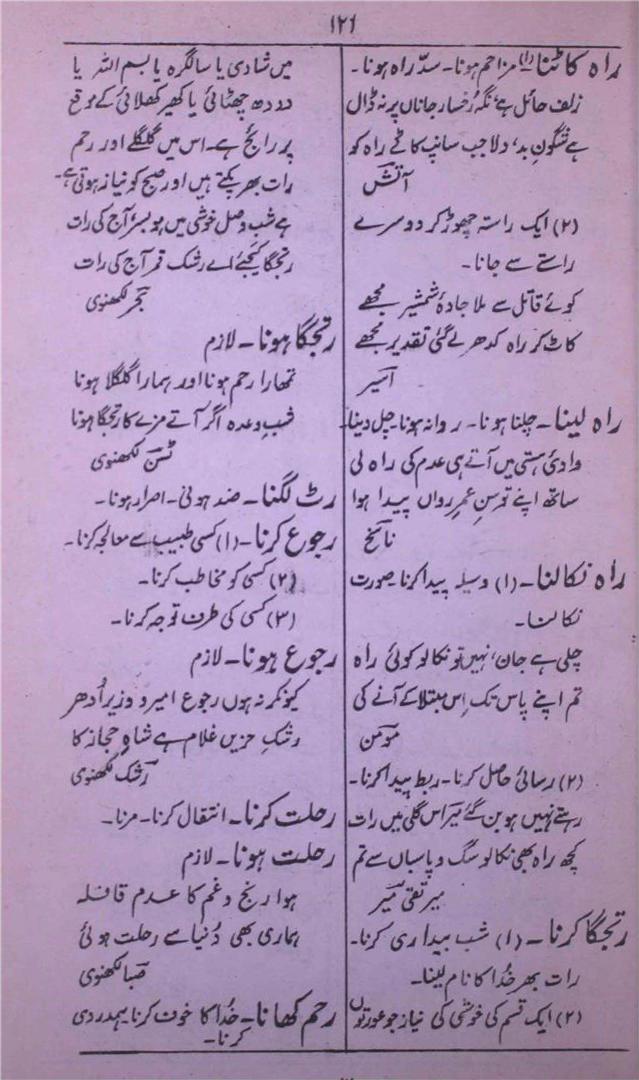 ۱۲۶
راہ کاٹنا (۱) مزاحم ہونا۔ سدّ راہ ہونا۔
زلف حائل ہے نگہ رُخسار جاناں پر نہ ڈال
ہے شگونِ بد، دلا جب سانپ کاٹے راہ کو
آتشؔ
(۲) ایک راستہ چھوڑ کر دوسرے
راستے سے جانا۔
کوئے قاتل سے ملا جادۂ شمشیر مجھے
کاٹ کر راہ کدھر لے گئی تقدیر مجھے
اسیرؔ
راہ لینا۔ چلنا ہونا۔ روانہ ہونا۔ چل دینا۔
وادیٔ ہستی میں آتے ہی عدم کی راہ لی
ساتھ اپنے توسنِ عمرِ رواں پیدا ہوا
ناسخؔ
راہ نکالنا۔ (۱) وسیلہ پیدا کرنا۔ صورت
نکالنا۔
چلی ہے جان، نہیں تو نکالو کوئی راہ
تم اپنے پاس تک اِس مبتلا کے آنے کی
مومنؔ
(۲) رسائی حاصل کرنا۔ ربط پیدا کرنا۔
رہتے نہیں ہو بن گئے میرؔ اس گلی میں رات
کچھ راہ بھی نکالو سگ و پاسباں سے تم
میر تقی میرؔ
رتجگا کرنا۔ (۱) شب بیداری کرنا۔
رات بھر خُدا کا نام لینا۔
(۲) ایک قسم کی خوشی کی نیاز جو عورتوں
میں شادی یا سالگرہ یا بسم اللہ یا
دودھ چھٹائی یا کھیر کھلائی کے موقع
پر رائج ہے۔ اس میں گلگلے اور رحم
رات بھر پکتے ہیں اور صبح کو نیاز ہوتی ہے۔
ہے شبِ وصل خوشی میں ہو بسر آج کی رات
رتجگا کیجئے اے رشک قمر آج کی رات
لکھنوی
رتجگا ہونا۔ لازم
تمھارا رحم ہونا اور ہمارا گلگلا ہونا
شبِ وعدہ اگر آتے مزے کا رتجگا ہونا
لکھنوی
رٹ لگنا۔ ضد ہونی۔ اصرار ہونا۔
رجوع کرنا۔ (۱) کسی طبیب سے معالجہ کرنا۔
(۲) کسی کو مخاطب کرنا۔
(۳) کسی کی طرف توجہ کرنا۔
رجوع ہونا۔ لازم
کیونکر نہ ہوں رجوع امیر و وزیر اُدھر
رشکِ حزیں غلام ہے شاہِ حجاز کا
رشکؔ لکھنوی
رحلت کرنا۔ انتقال کرنا۔ مرنا۔
رحلت ہونا۔ لازم
ہوا رنج و غم کا عدم قافلہ
ہماری بھی دُنیا سے رحلت ہوئی
صباؔ لکھنوی
رحم کھانا۔ خُدا کا خوف کرنا۔ ہمدردی
کرنا۔